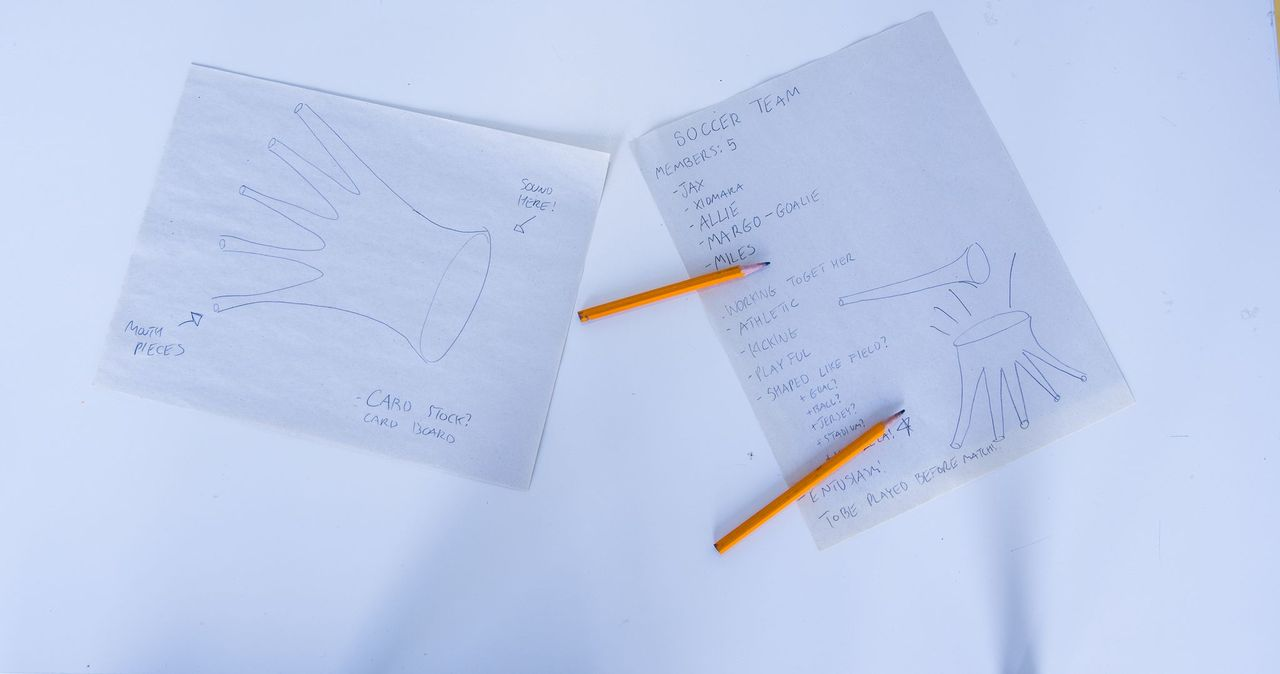 SOUND
HERE!
MOUTH
PIECES
- CARD STOCK?
CARD BOARD
SOCCER TEAM
MEMBERS: 5
- JAX
- XIOMARA
- ALLIE
- MARGO - GOALIE
- MILES
- WORKING TOGETHER
- ATHLETIC
- KICKING
- PLAYFUL
- SHAPED LIKE FIELD?
+ GOAL?
+ BALL?
+ JERSEY?
+ STADIUM?
- ENTUSIASM!
TO BE PLAYED BEFORE MATCH!